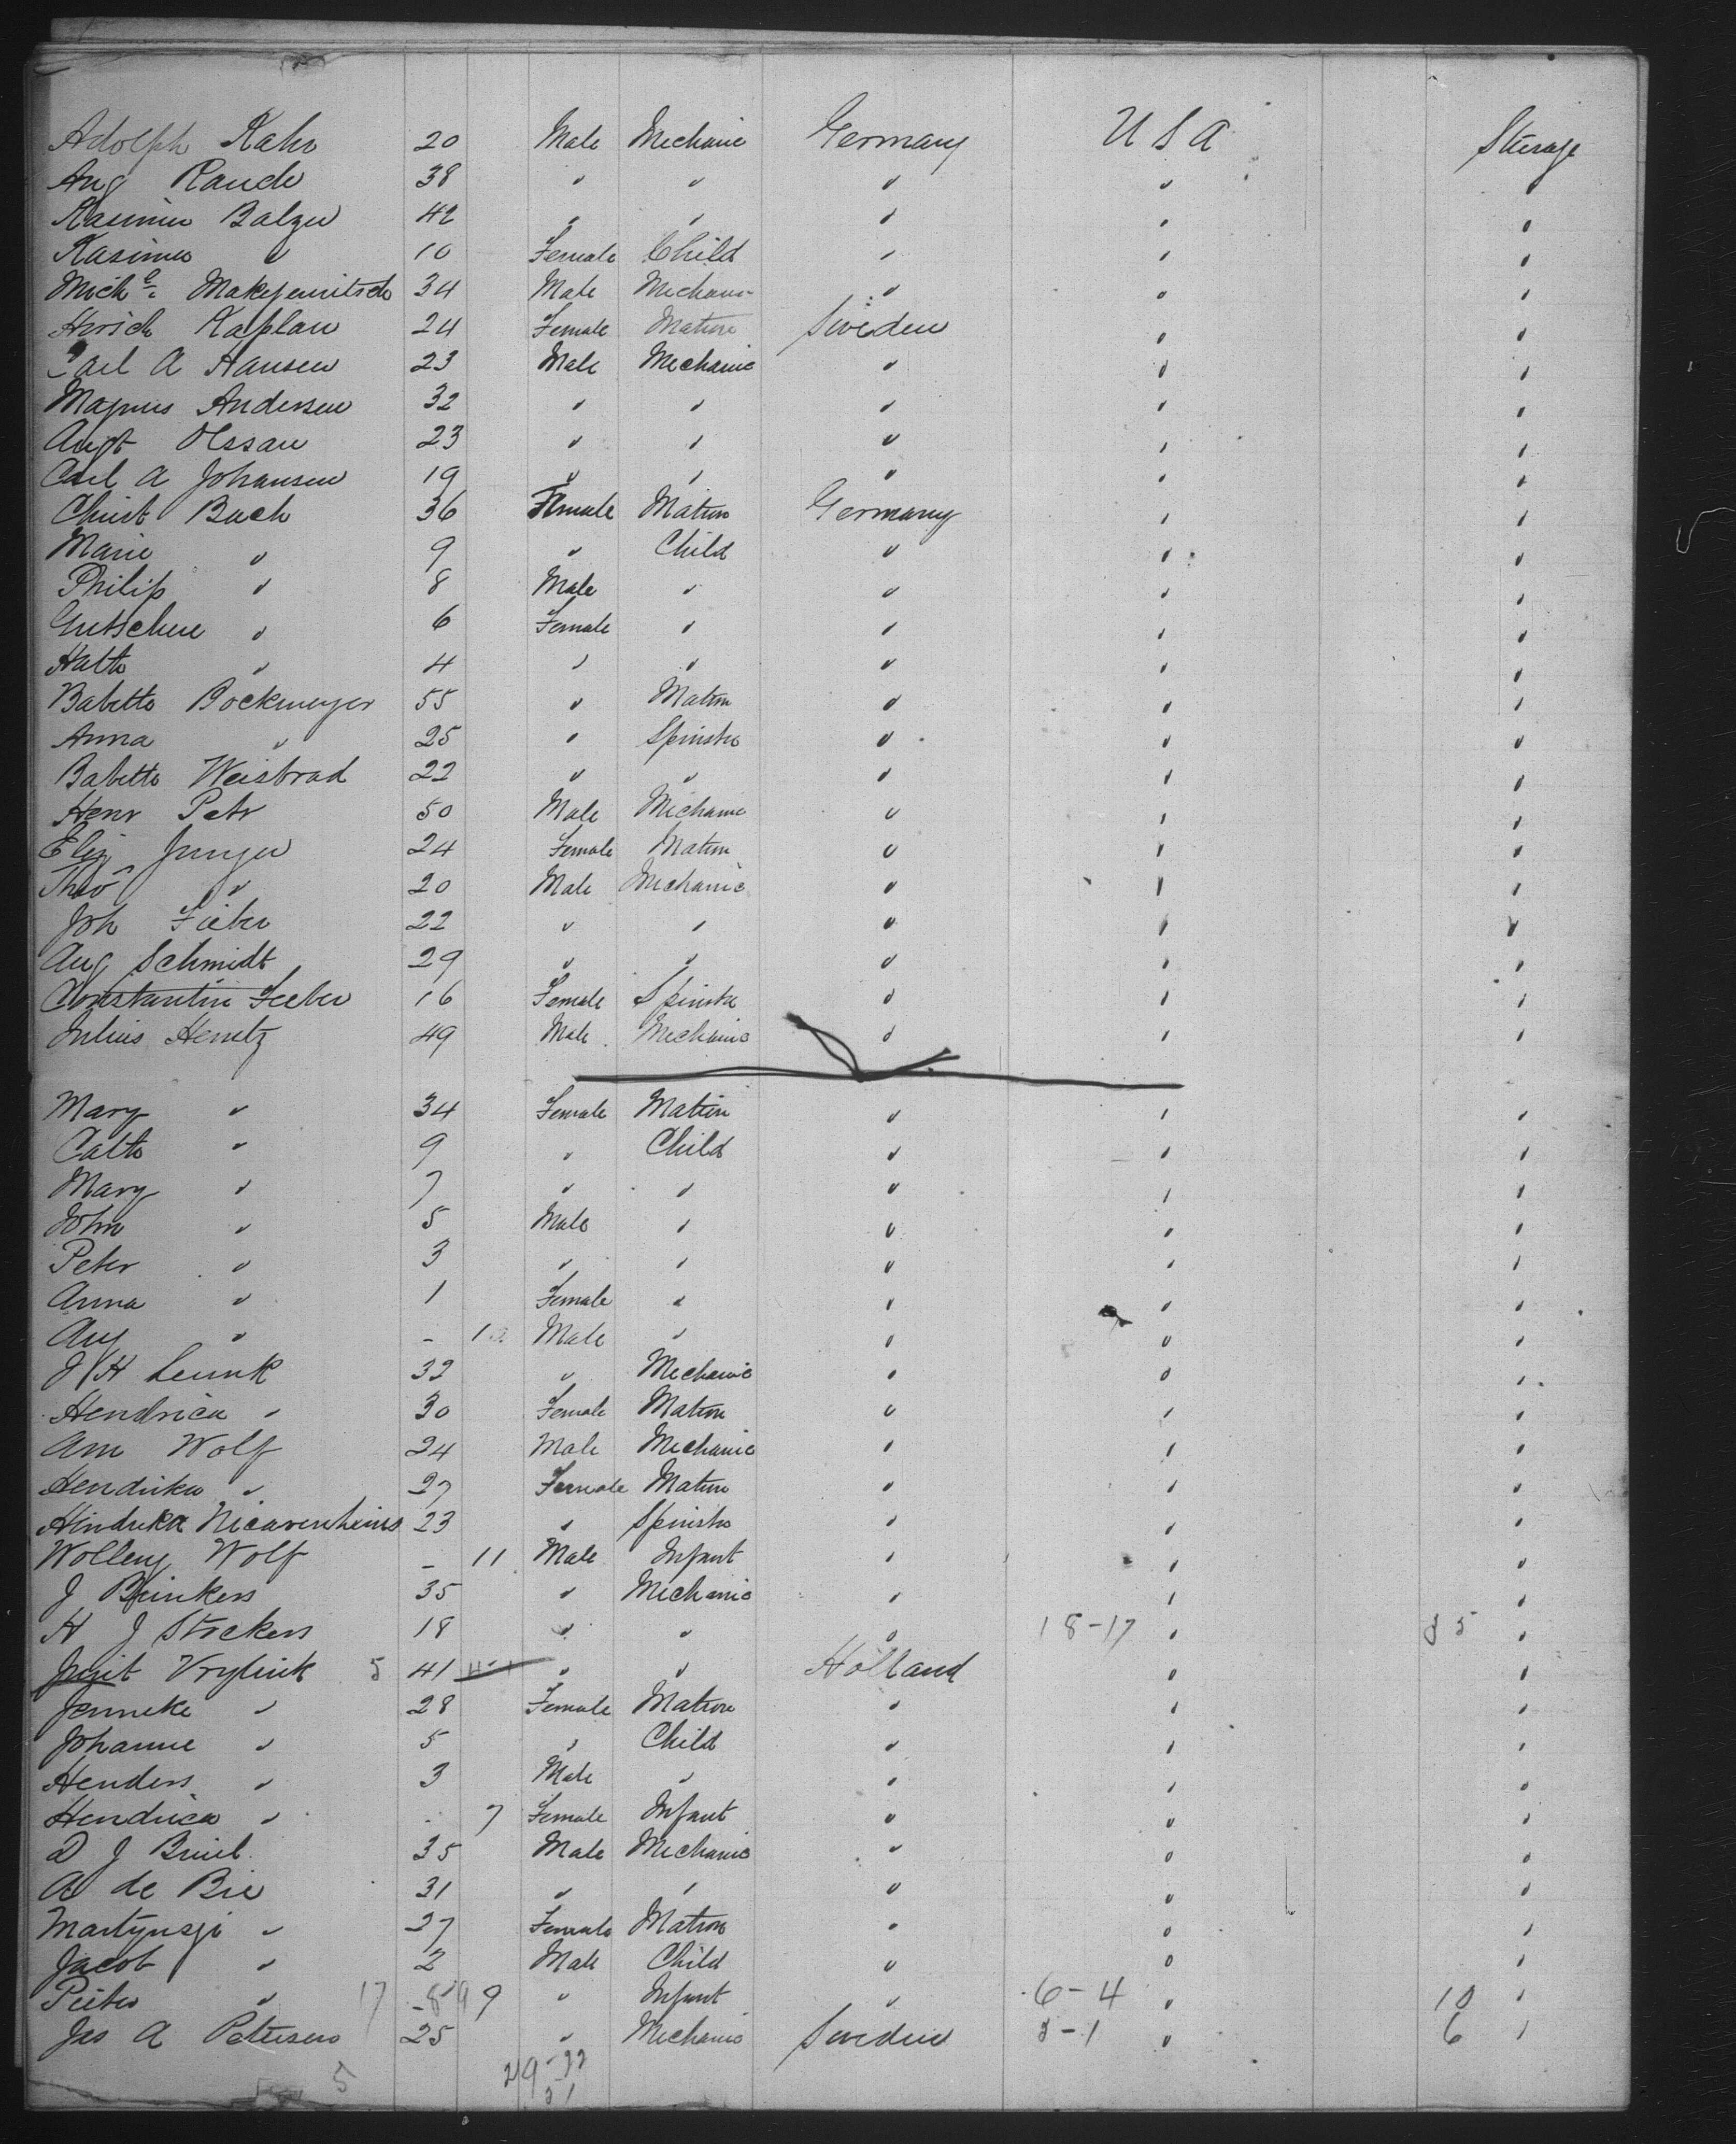 Adolph Kahn 20 Male Mechanic Germany U S A Steerage
Aug Rauch 38 " " " " "
Kasimir Balzer 42 " " " " "
Kasimir " 10 Female Child " " "
Michl. Makejewitsch 34 Male Mechanic " " "
Hirsch Kaplan 24 Female Matron Sweden " "
Carl A Hansen 23 Male Mechanic " " "
Magnus Andersen 32 " " " " "
Augt Olssan 23 " " " " "
Carl A Johansen 19 " " " " "
Christ Bach 36 Female Matron Germany " "
Marie " 9 " Child " " "
Philip " 8 Male " " " "
Gretschen " 6 Female " " " "
" 4 " " " " "
Babette Bockmeyer 55 " Matron " " "
Anna " 25 " Spinster " " "
Babette Weisbrad 22 " " " " "
Henr Petr 50 Male Mechanic " " "
Eliz Junger 24 Female Matron " " "
Theo " 20 Male Mechanic " " "
Joh Fieber 22 " " " " "
Aug Schmidt 29 " " " " "
Constantin Feeber 16 Female Spinster " " "
Julius Hentz 49 Male Mechanic " " "
Mary " 34 Female Matron " " "
" 9 " Child " " "
Mary " 7 " " " " "
John " 5 Male " " " "
Peter " 3 " " " " "
Anna " 1 Female " " " "
Aug " - Male " " " "
J H Leunk 32 " Mechanic " " "
Hendrica " 30 Female Matron " " "
Am Wolf 24 Male Mechanic " " "
Hendrika " 27 Female Matron " " "
Hindrika 23 " Spinster " " "
Wolleng Wolf - 11 Male Infant " " "
J Brinkers 35 " Mechanic " " "
H J Stokers 18 " " " 18-17 " 35
Vrylink 5 41 " " Holland " "
Jenneke " 28 Female Matron " " "
Johanne " 5 " Child " " "
Henders " 3 Male " " " "
Hendrica " 7 Female Infant " " "
D J Bruil 35 Male Mechanic " " "
A de Bie 31 " " " " "
Martynsje " 27 Female Matron " " "
Jacob " 2 Male Child " " "
Pieter " 17 9 " Infant " 6-4 " 10 "
Jas A Petersen 25 " Mechanic Sweden " 6 "
5 29-22
21